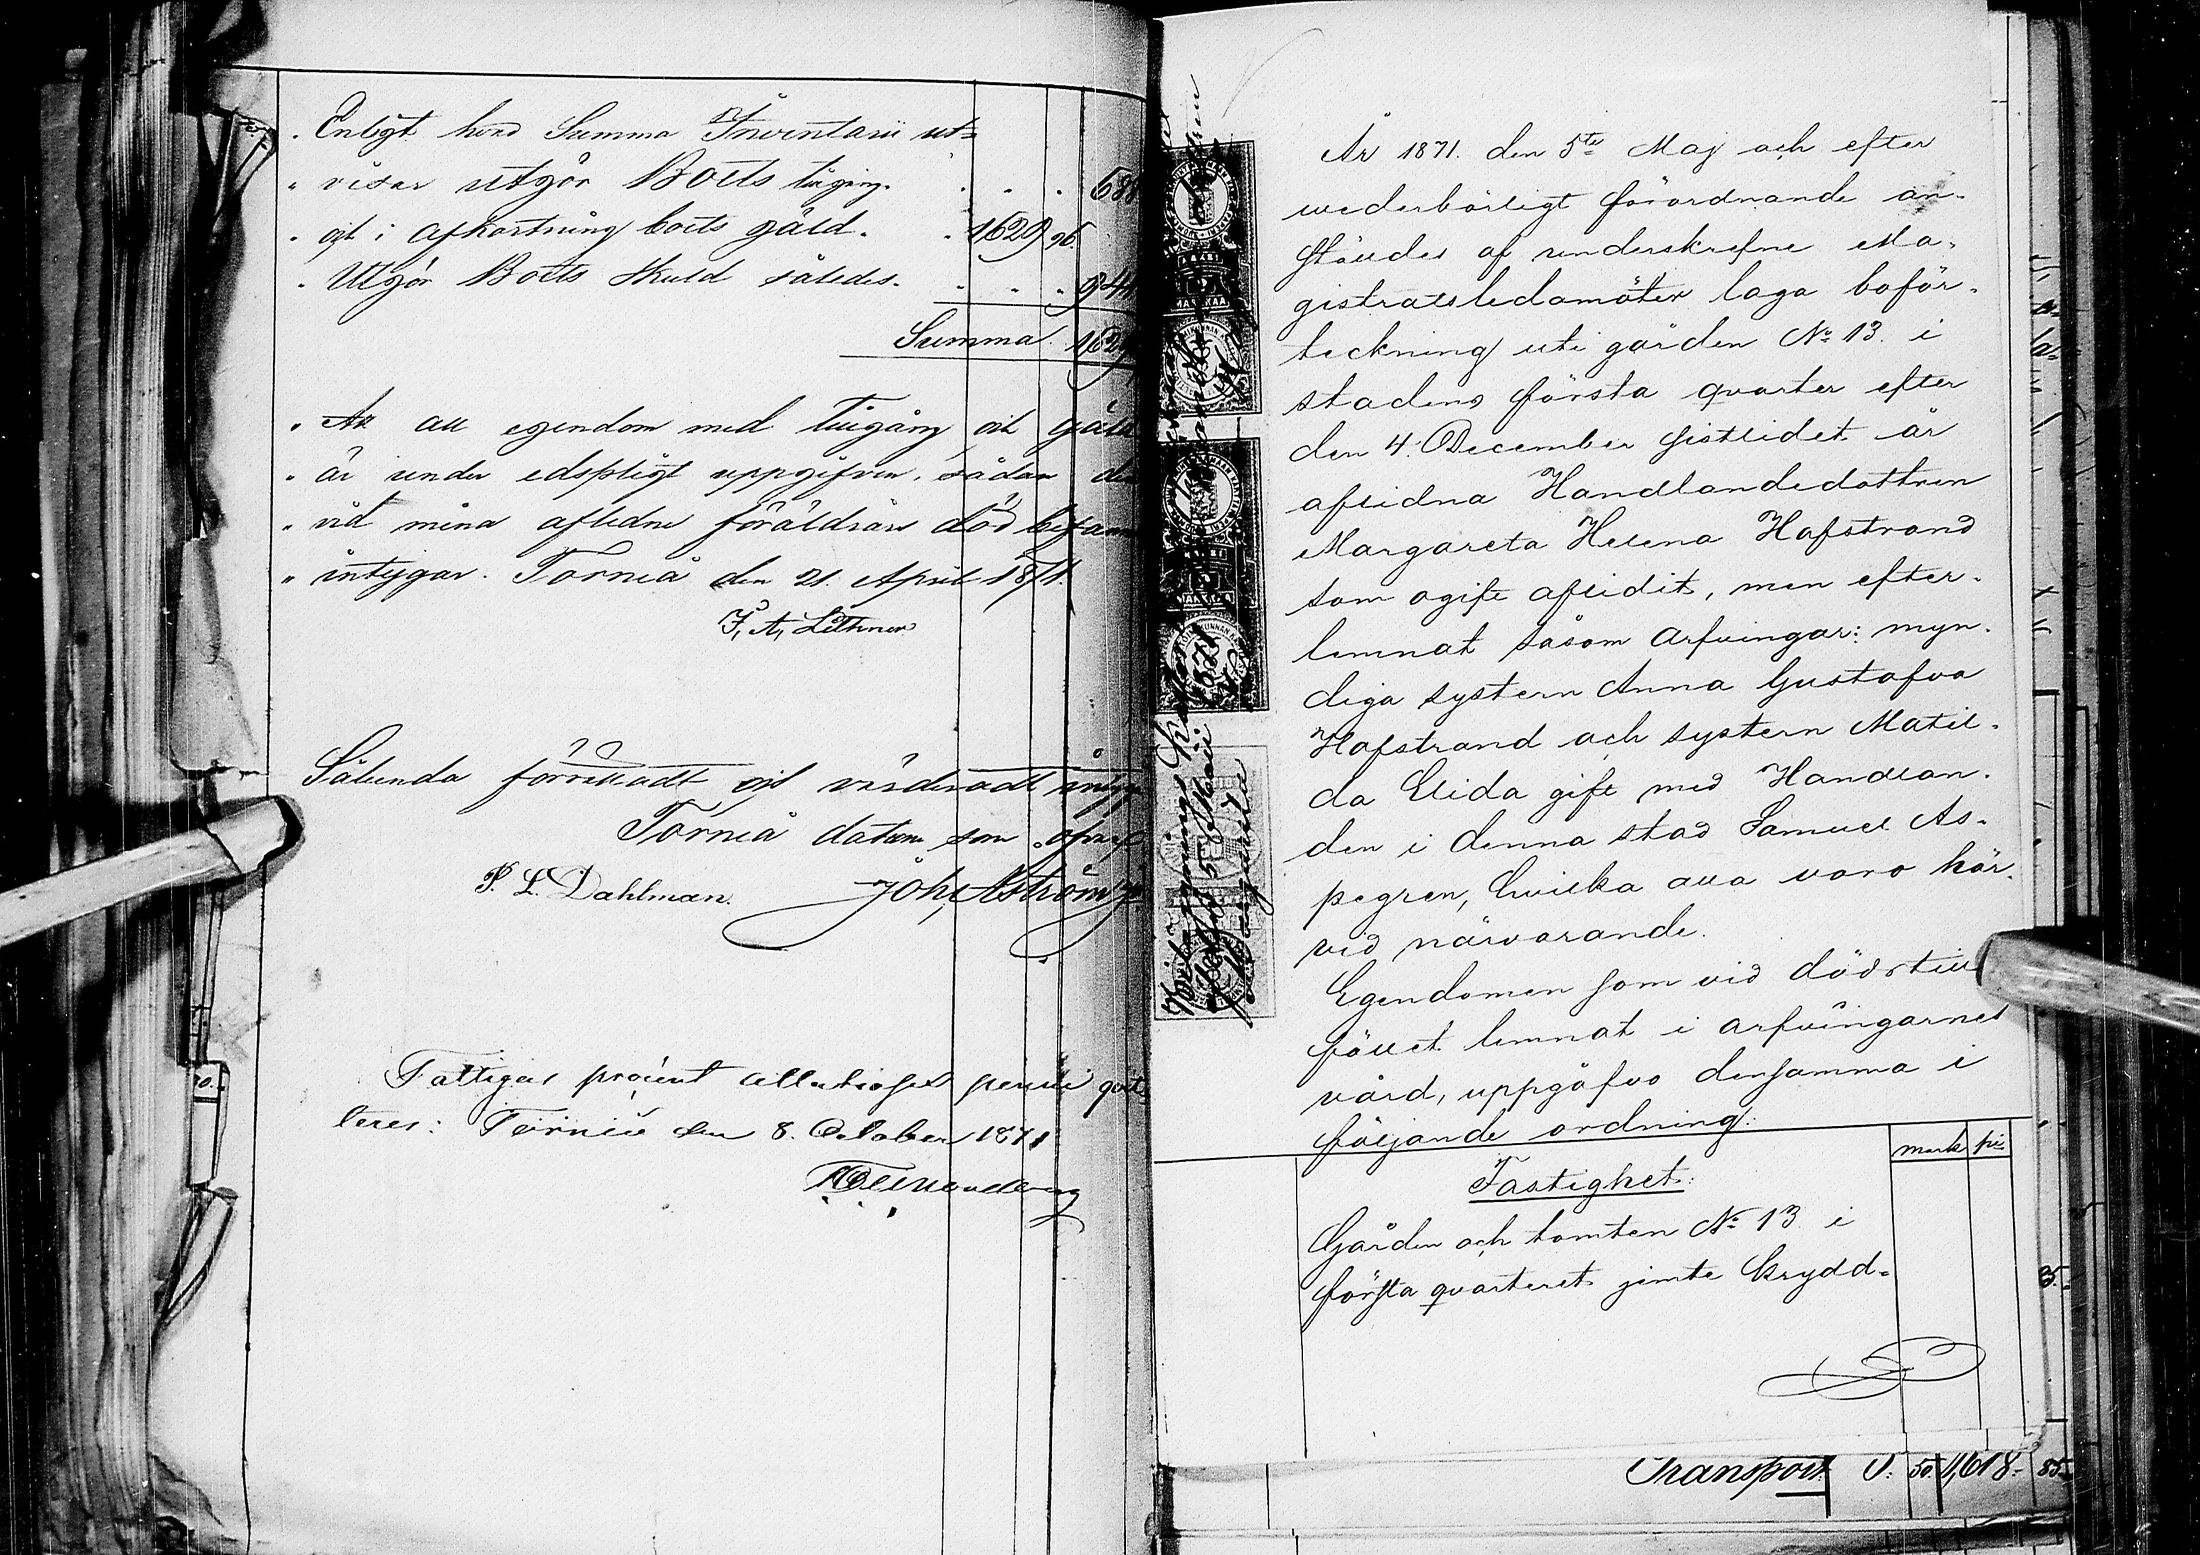 Enligt hvad Summa Inventarii ut=
" visar utgör Boets tillgång. . . . 688
" och i afkortning boets gäld. . 1629 96.
" Utgör Boets Skuld således. . . . 941
Summa. 1629
" At all egendom med tillgång och gäld
" är under edspligt uppgifven, sådan den
" vid mina aflidne föräldrars död befann
" intygar. Torneå den 21. April 1871.
J. A. Lithner
Sålunda förrättadt och värderadt intyga
Torneå datum som ofvan
P. L. Dahlman. Joh. Åström
Fattiges procent penni qvit
teres: Torneå den 8. October 1871
År 1871. den 5te Maj och efter
wederbörligt förordnande an-
stäldes af underskrefne Ma-
gistratsledamöter laga boför-
teckning uti gården No 13. i
stadens första qvarter efter
den 4. December sistlidet år
aflidna Handlandedottren
Margareta Helena Hafstrand
som ogift aflidit, men efter-
lemnat såsom arfvingar: myn-
diga systern Anna Gustafva
Hafstrand och systern Matil-
da Elida gift med Handlan-
den i denna stad Samuel As-
pegren, hvilka alla voro här-
vid närvarande.
Egendomen som vid dödstill
fället lemnat i arfvingarnes
vård, uppgåfvo densamma i
följande ordning:
mark pi
Fastighet:
Gården och tomten No 13 i
första qvarteret jemte krydd-
Transport 50 1,618. 85.